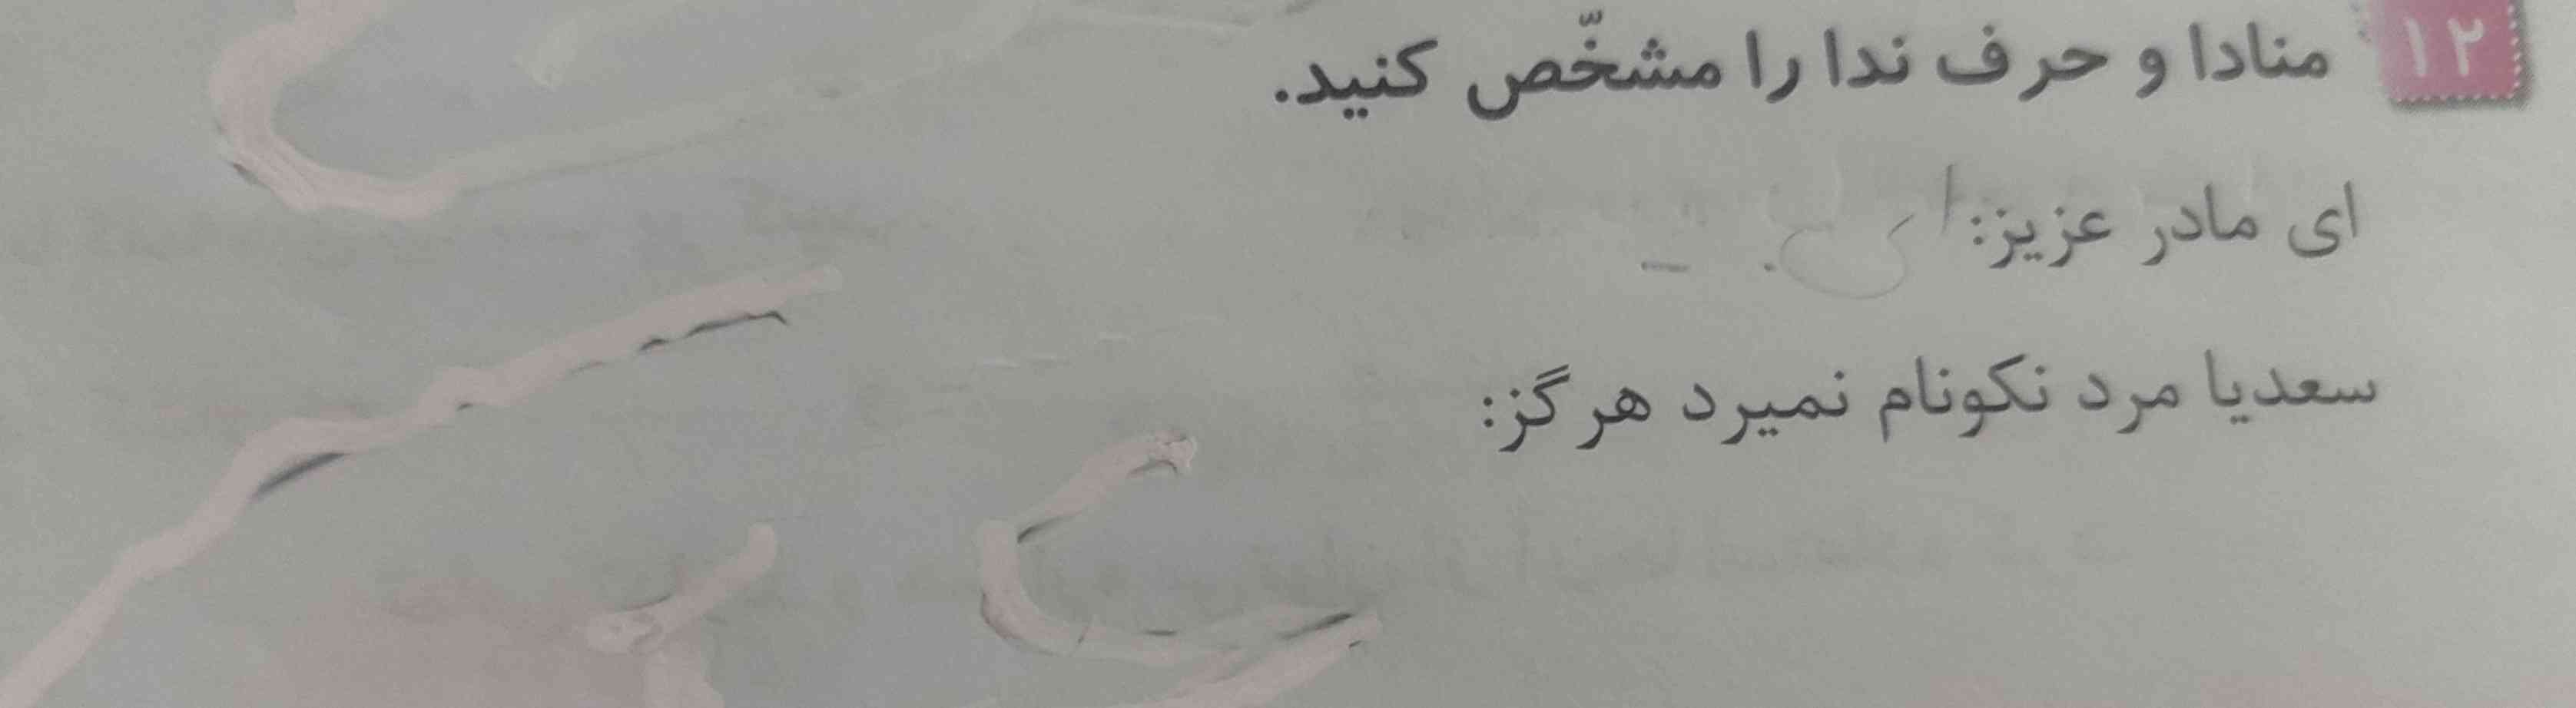 ۱۲ منادا و حرف ندا را مشخّص کنید.
ای مادر عزیز: ای
سعدیا مرد نکونام نمیرد هرگز: